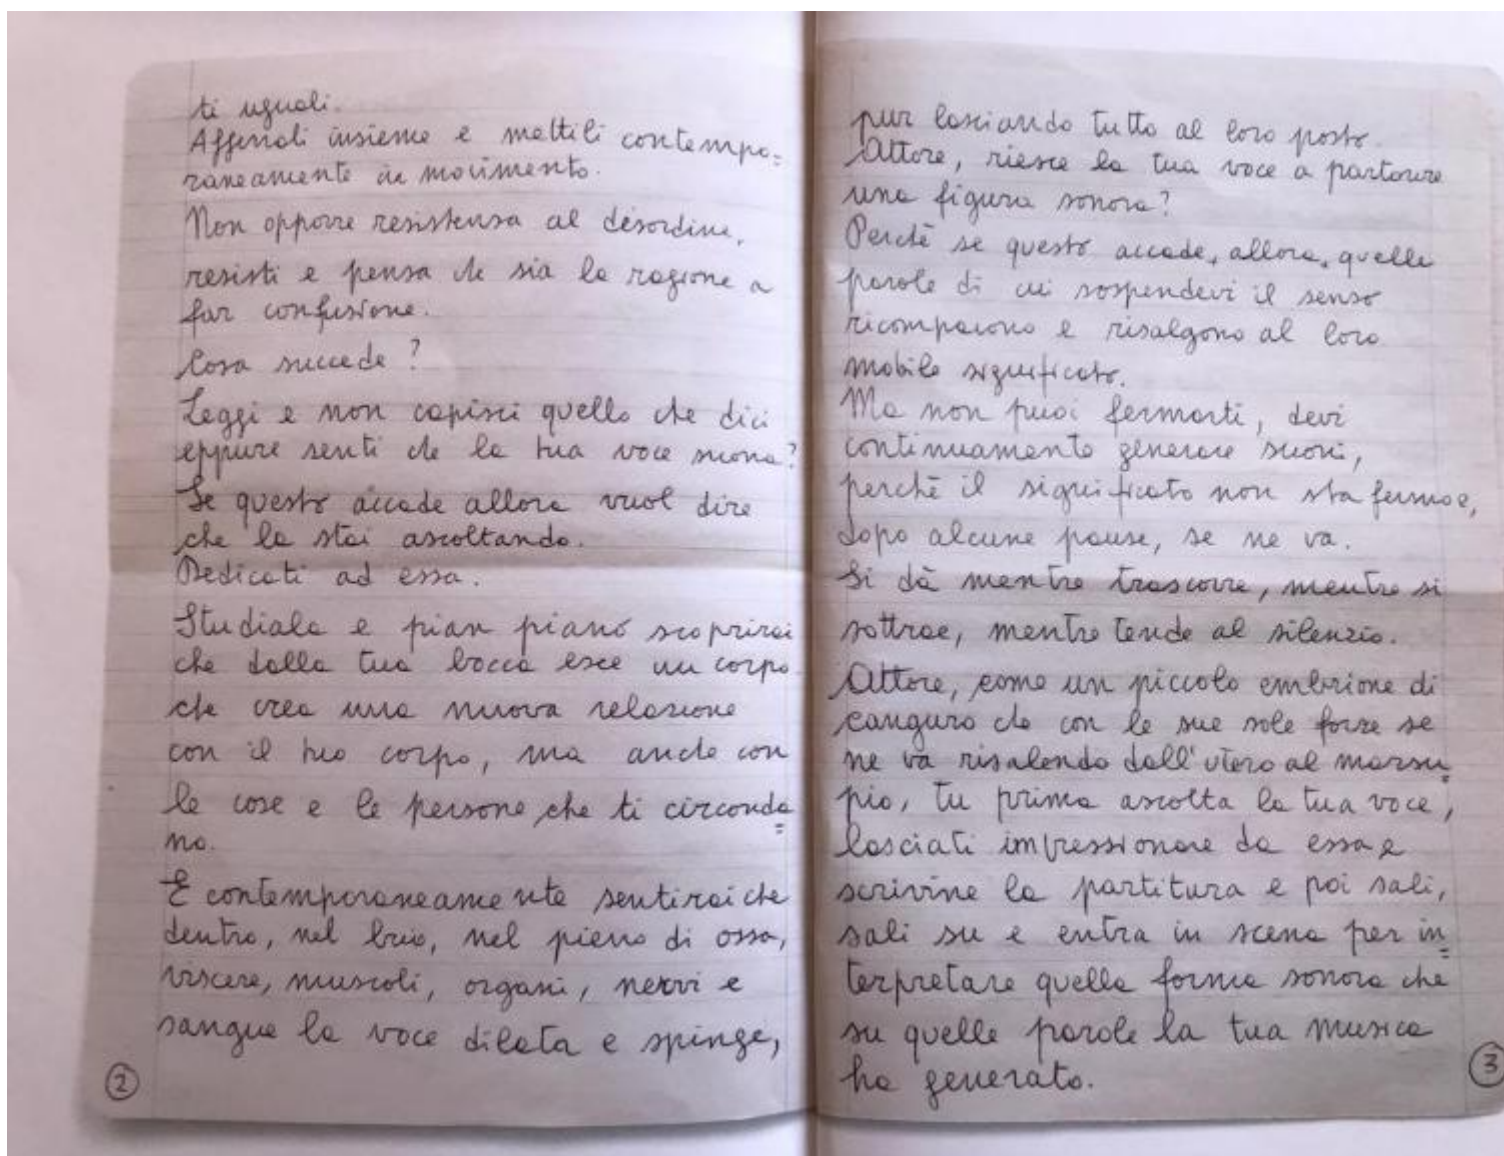 ti uguali.
Afferrali insieme e mettili contempo=
raneamente in movimento.
Non opporre resistenza al disordine,
resisti e pensa che sia la ragione a
far confusione.
Cosa succede?
Leggi e non capisci quello che dici
eppure senti che la tua voce suona?
Se questo accade allora vuol dire
che la stai ascoltando.
Dedicati ad essa.
Studiala e pian piano scoprirai
che dalla tua bocca esce un corpo
che crea una nuova relazione
con il tuo corpo, ma anche con
le cose e le persone che ti circonda=
no.
E contemporaneamente sentirai che
dentro, nel buio, nel pieno di ossa,
viscere, muscoli, organi, nervi e
sangue la voce dilata e spinge,
2
pur lasciando tutto al loro posto.
Attore, riesce la tua voce a partorire
una figura sonora?
Perché se questo accade, allora, quelle
parole di cui sospendevi il senso
ricompaiono e risalgono al loro
mobile significato.
Ma non puoi fermarti, devi
continuamente generare suoni,
perché il significato non sta fermo e,
dopo alcune pause, se ne va.
Si dà mentre trascorre, mentre si
sottrae, mentre tende al silenzio.
Attore, come un piccolo embrione di
canguro che con le sue sole forze se
ne va risalendo dall'utero al marsu=
pio, tu prima ascolta la tua voce,
lasciati impressionare da essa e
scrivine la partitura e poi sali,
sali su e entra in scena per in=
terpretare quella forma sonora che
su quelle parole la tua musica
ha generato.
3